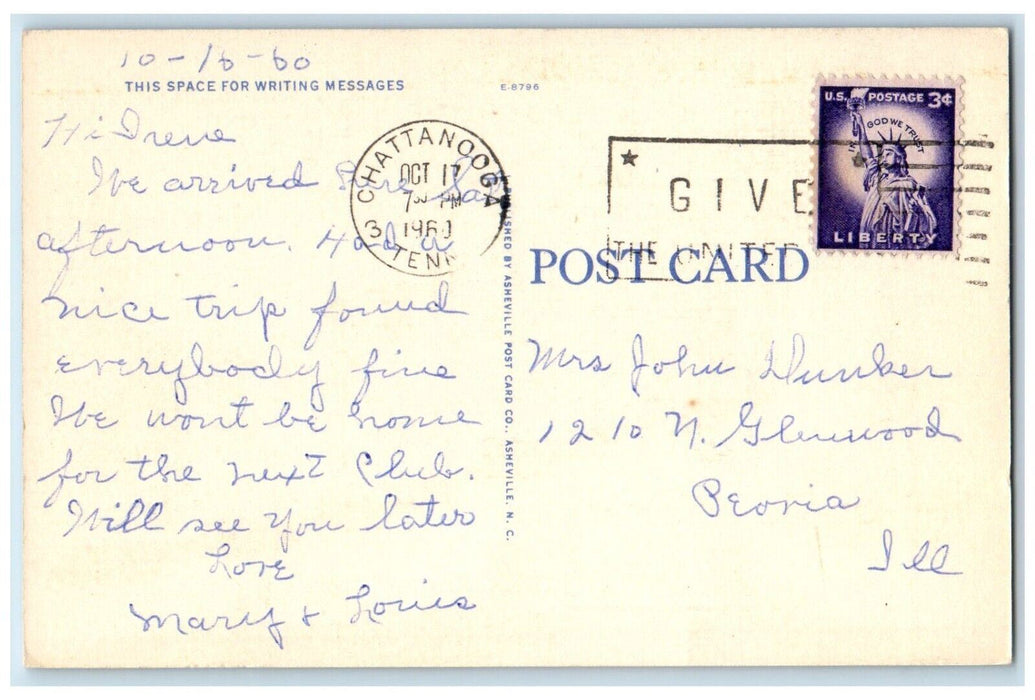 10-16-60
THIS SPACE FOR WRITING MESSAGES
E-8796
Hi Irene
We arrived here Sat
afternoon. Had a
nice trip found
everybody fine
We wont be home
for the next Club.
Will see you later
Love
Mary & Louis
CHATTANOOGA
OCT 17
7 30 PM
1960
3 TENN
PUBLISHED BY ASHEVILLE POST CARD CO., ASHEVILLE, N. C.
GIVE
THE UNITED
U.S. POSTAGE 3¢
IN GOD WE TRUST
LIBERTY
POST CARD
Mrs John Dunker
1210 N. Glenwood
Peoria
Ill